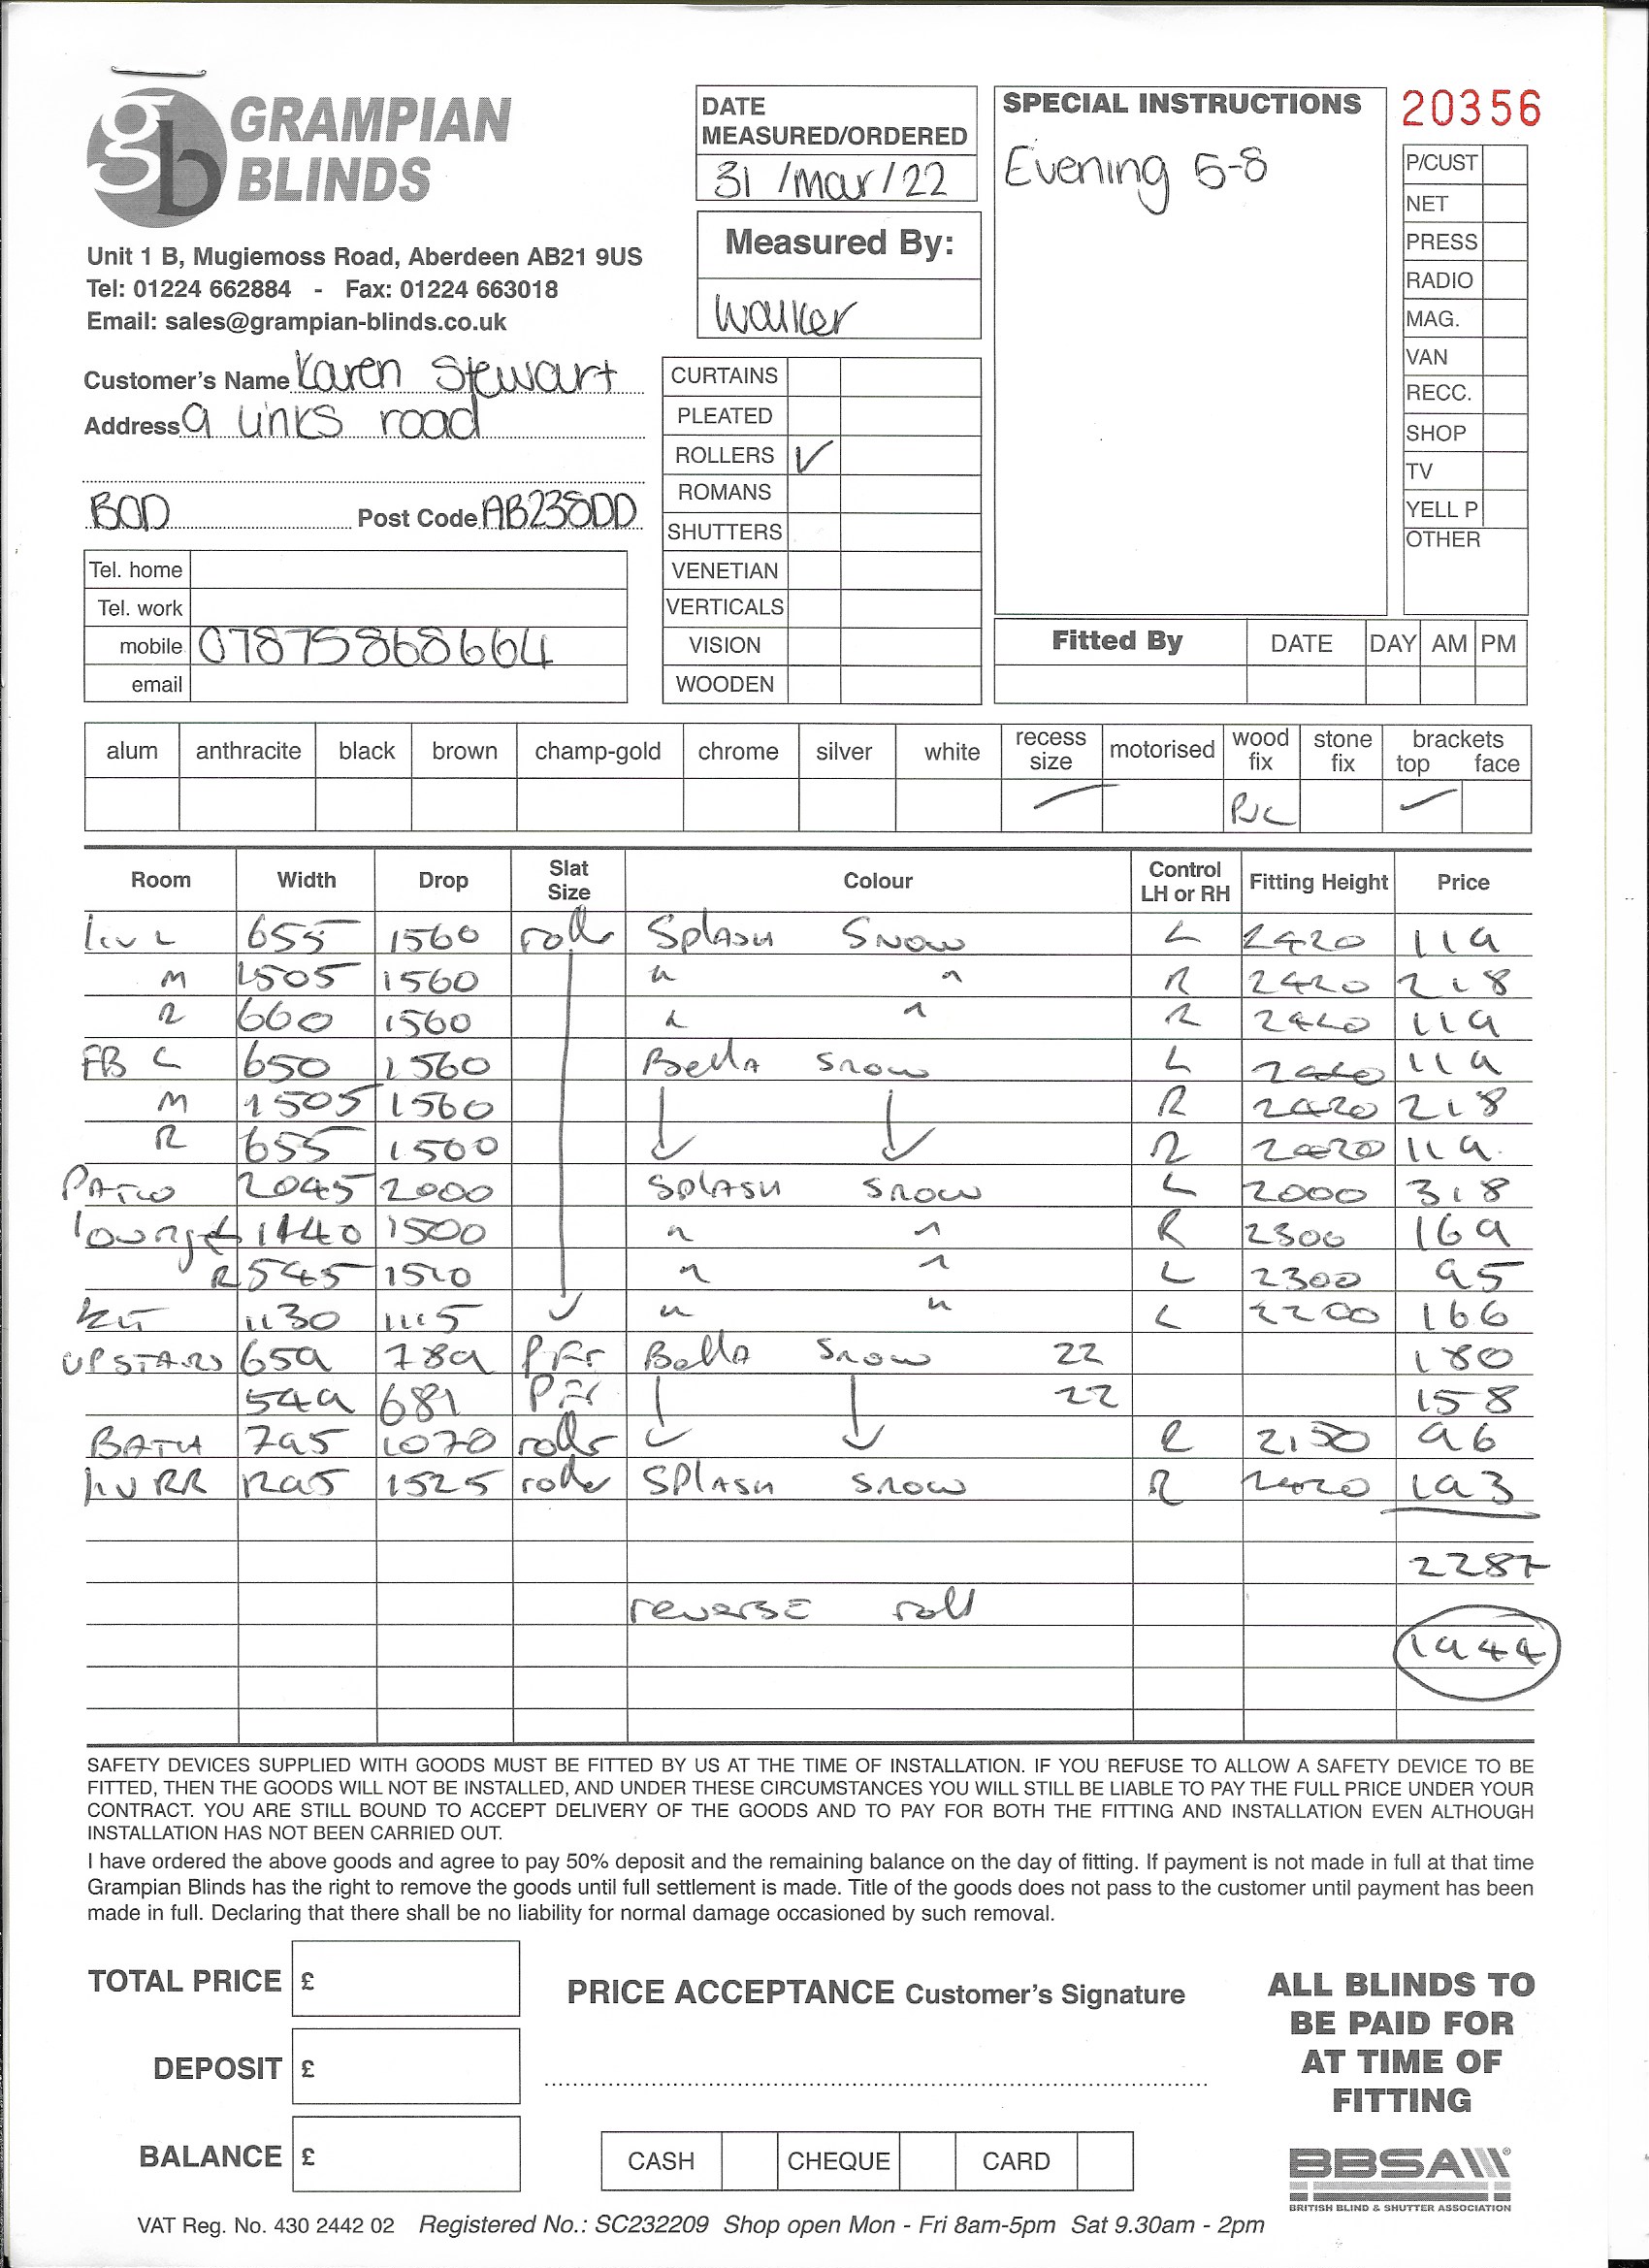 gb GRAMPIAN BLINDS
Unit 1 B, Mugiemoss Road, Aberdeen AB21 9US
Tel: 01224 662884 - Fax: 01224 663018
Email: sales@grampian-blinds.co.uk
Customer's Name Karen Stewart
Address 9 Links road
BOD Post Code AB238DD
Tel. home
Tel. work
mobile 07875868664
email
DATE MEASURED/ORDERED
31/Mar/22
Measured By:
Walker
CURTAINS
PLEATED
ROLLERS ✓
ROMANS
SHUTTERS
VENETIAN
VERTICALS
VISION
WOODEN
SPECIAL INSTRUCTIONS
Evening 5-8
20356
P/CUST
NET
PRESS
RADIO
MAG.
VAN
RECC.
SHOP
TV
YELL P
OTHER
Fitted By DATE DAY AM PM
alum anthracite black brown champ-gold chrome silver white recess size motorised wood fix stone fix brackets top face
PVC
Room Width Drop Slat Size Colour Control LH or RH Fitting Height Price
Liv L 655 1560 roller Splash Snow L 2420 119
M 1505 1560 " " R 2420 218
R 660 1560 " " R 2420 119
FB L 650 1560 Bella Snow L 2420 119
M 1505 1560 R 2420 218
R 655 1560 R 2420 119
Patio 2045 2000 Splash Snow L 2000 318
Lounge L 1140 1500 " " R 2300 169
R 545 1510 " " L 2300 95
Kit 1130 1115 " " L 2200 166
UPSTAIRS 659 789 PFr Bella Snow 22 180
549 681 PFr 22 158
BATH 795 1070 roller R 2150 96
Liv RR 1295 1525 roller Splash Snow R 2420 193
2287
reverse roll
1944
SAFETY DEVICES SUPPLIED WITH GOODS MUST BE FITTED BY US AT THE TIME OF INSTALLATION. IF YOU REFUSE TO ALLOW A SAFETY DEVICE TO BE
FITTED, THEN THE GOODS WILL NOT BE INSTALLED, AND UNDER THESE CIRCUMSTANCES YOU WILL STILL BE LIABLE TO PAY THE FULL PRICE UNDER YOUR
CONTRACT. YOU ARE STILL BOUND TO ACCEPT DELIVERY OF THE GOODS AND TO PAY FOR BOTH THE FITTING AND INSTALLATION EVEN ALTHOUGH
INSTALLATION HAS NOT BEEN CARRIED OUT.
I have ordered the above goods and agree to pay 50% deposit and the remaining balance on the day of fitting. If payment is not made in full at that time
Grampian Blinds has the right to remove the goods until full settlement is made. Title of the goods does not pass to the customer until payment has been
made in full. Declaring that there shall be no liability for normal damage occasioned by such removal.
TOTAL PRICE £
DEPOSIT £
BALANCE £
PRICE ACCEPTANCE Customer's Signature
CASH CHEQUE CARD
ALL BLINDS TO
BE PAID FOR
AT TIME OF
FITTING
BBSA
BRITISH BLIND & SHUTTER ASSOCIATION
VAT Reg. No. 430 2442 02 Registered No.: SC232209 Shop open Mon - Fri 8am-5pm Sat 9.30am - 2pm